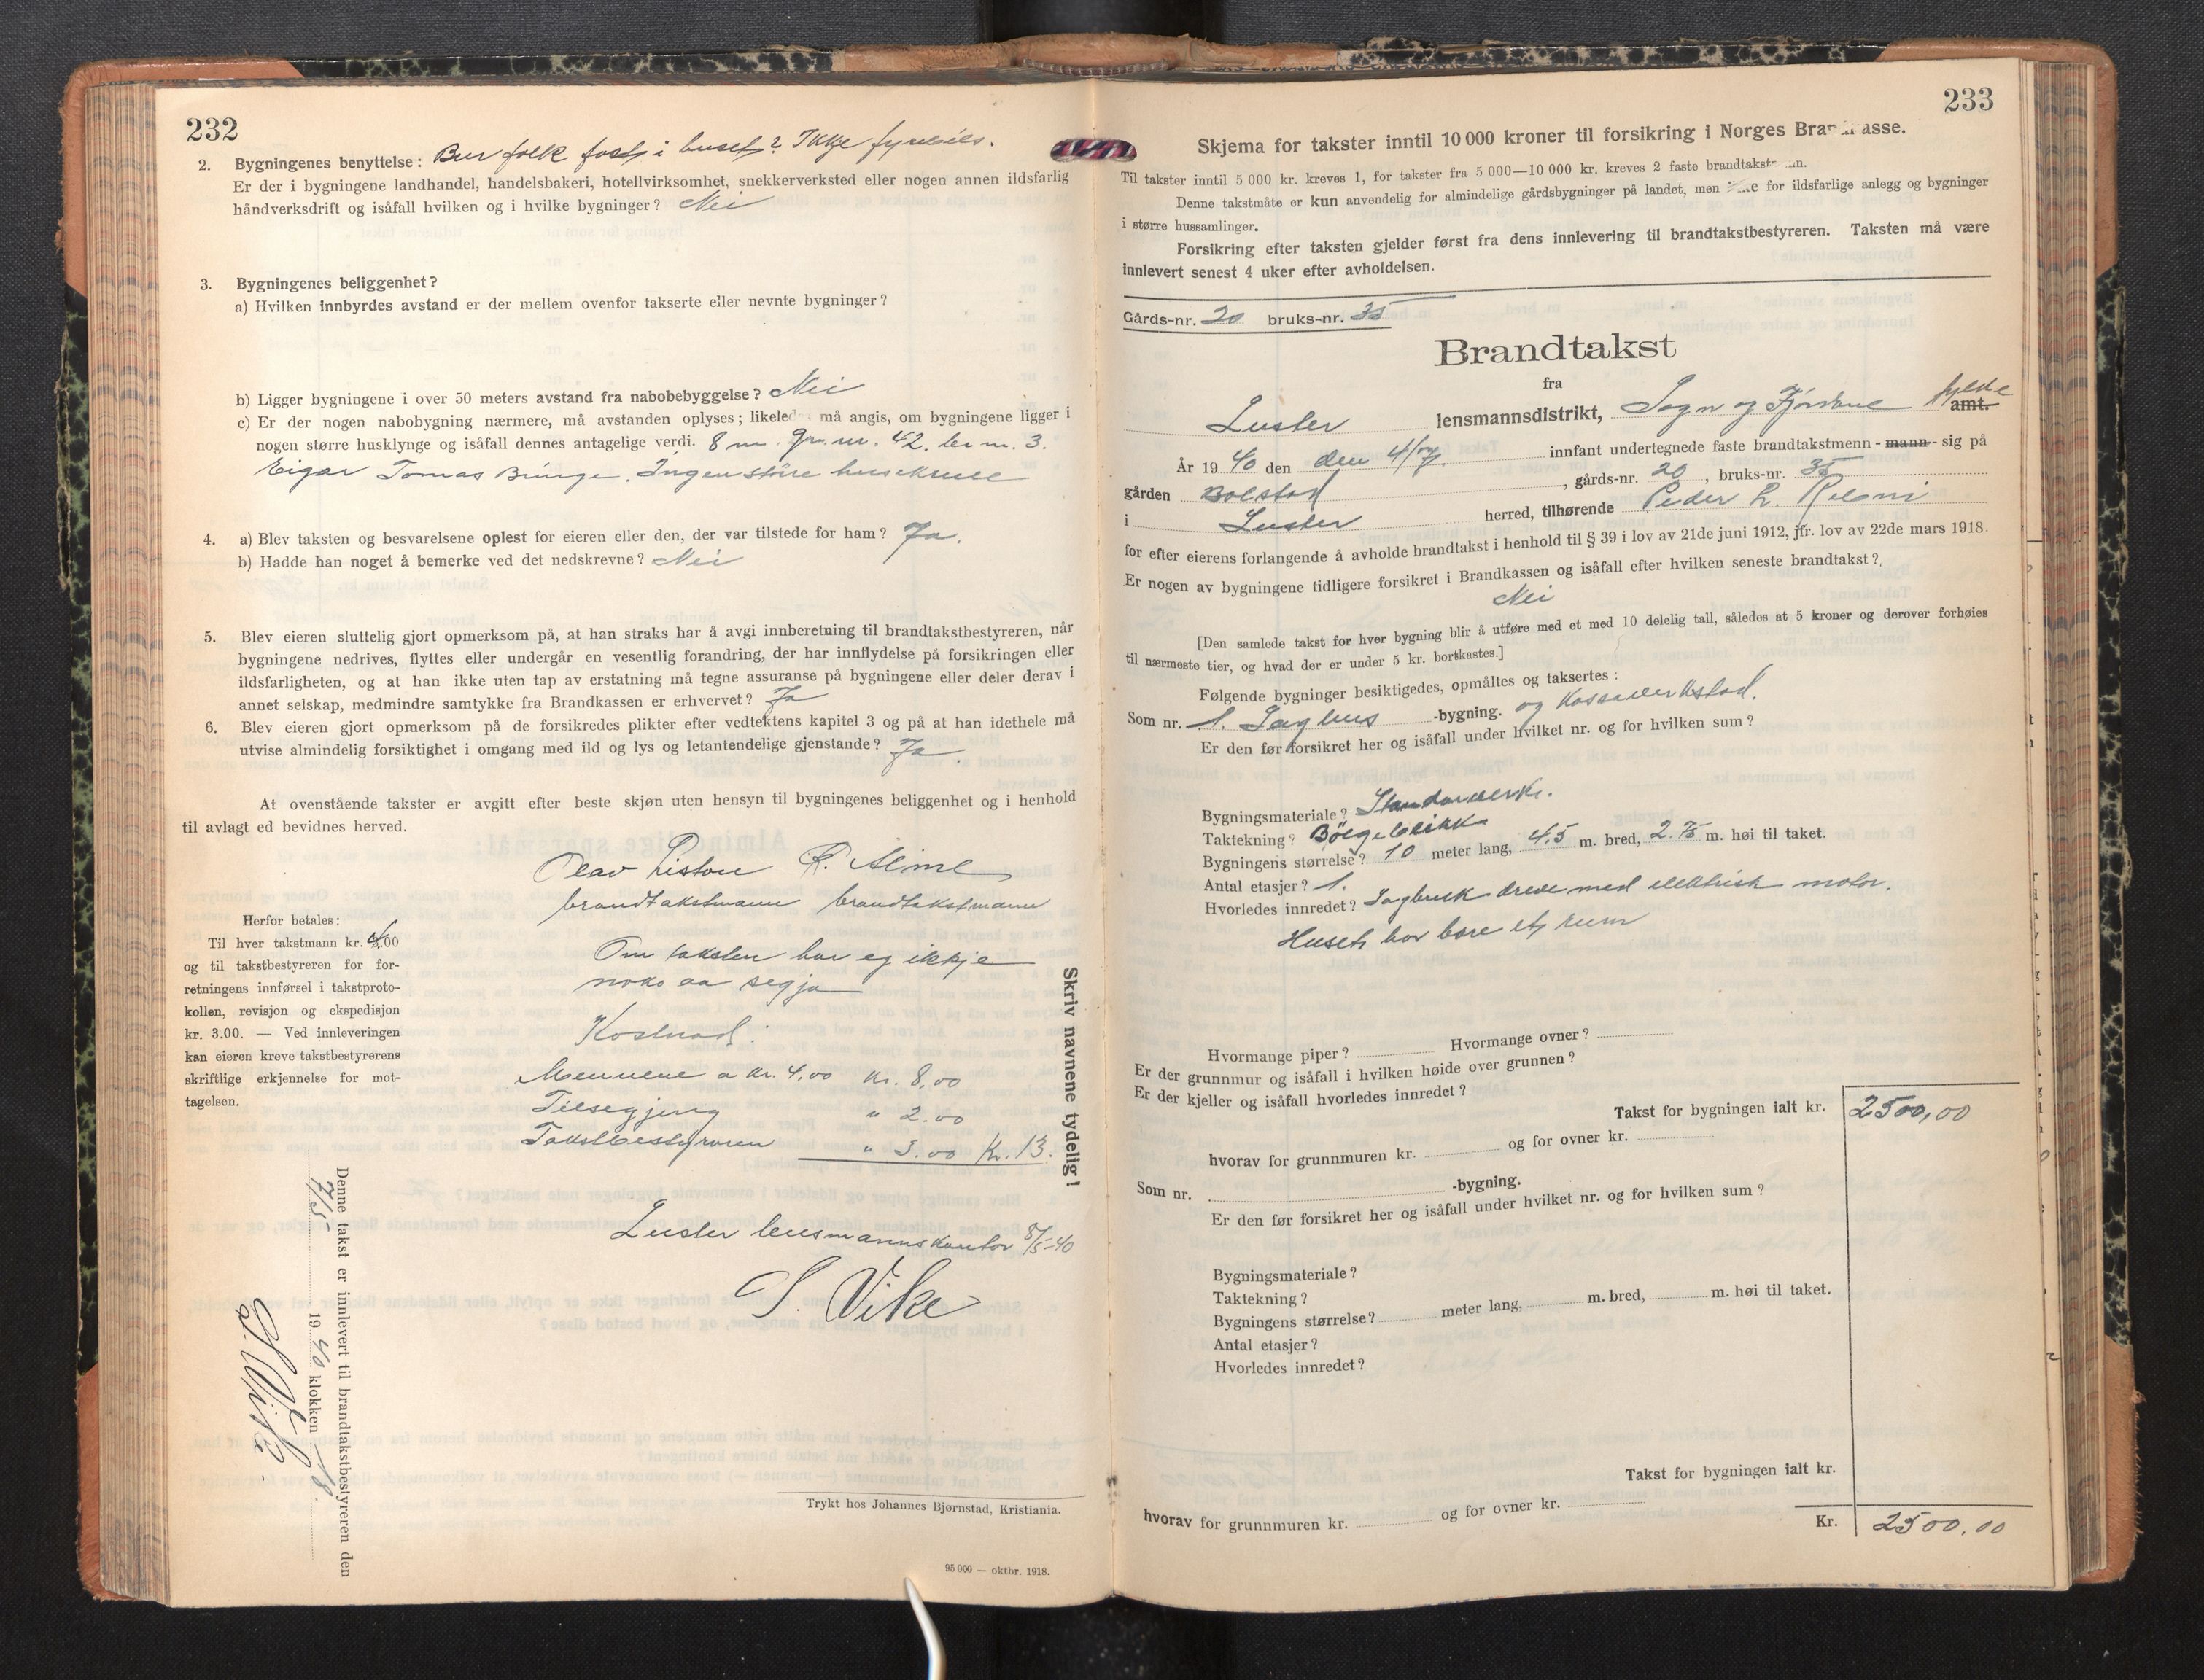 232
2. Bygningenes benyttelse: Bur folk fast i huset? Ikkje fyrebils.
Er der i bygningene landhandel, handelsbakeri, hotellvirksomhet, snekkerverksted eller nogen annen ildsfarlig
håndverksdrift og isåfall hvilken og i hvilke bygninger? Nei
3. Bygningenes beliggenhet?
a) Hvilken innbyrdes avstand er der mellem ovenfor takserte eller nevnte bygninger?
b) Ligger bygningene i over 50 meters avstand fra nabobebyggelse? Nei
c) Er der nogen nabobygning nærmere, må avstanden oplyses; likeled må angis, om bygningene ligger i
nogen større husklynge og isåfall dennes antagelige verdi. 8 m. gr.nr. 42. br.n. 3.
Eigar Tomas Bunge. Ingen större
4. a) Blev taksten og besvarelsene oplest for eieren eller den, der var tilstede for ham? Ja.
b) Hadde han noget å bemerke ved det nedskrevne? Nei
5. Blev eieren sluttelig gjort opmerksom på, at han straks har å avgi innberetning til brandtakstbestyreren, når
bygningene nedrives, flyttes eller undergår en vesentlig forandring, der har innflydelse på forsikringen eller
ildsfarligheten, og at han ikke uten tap av erstatning må tegne assuranse på bygningene eller deler derav i
annet selskap, medmindre samtykke fra Brandkassen er erhvervet? Ja
6. Blev eieren gjort opmerksom på de forsikredes plikter efter vedtektens kapitel 3 og på at han idethele må
utvise almindelig forsiktighet i omgang med ild og lys og letantendelige gjenstande? Ja.
At ovenstående takster er avgitt efter beste skjøn uten hensyn til bygningenes beliggenhet og i henhold
til avlagt ed bevidnes herved.
Olav
brandtakstmann brandtakstmann
Herfor betales:
Til hver takstmann kr. 4.00
og til takstbestyreren for for-
retningens innførsel i takstproto-
kollen, revisjon og ekspedisjon
kr. 3.00. — Ved innleveringen
kan eieren kreve takstbestyrerens
skriftlige erkjennelse for mot-
tagelsen.
Om taksten har eg ikkje
noko aa segja
Kostnad:
Mennene a kr. 4,00 kr. 8,00
Tilsegjing " 2.00
Takstbestyraren " 3.00 Kr. 13.
Skriv navnene tydelig!
Luster lensmannskontor 8/5-40
S. Vike
Denne takst er innlevert til brandtakstbestyreren den
7/5 1940 klokken 18.
S. Vike
Trykt hos Johannes Bjørnstad, Kristiania.
95 000 — oktbr. 1918.
233
Skjema for takster inntil 10 000 kroner til forsikring i Norges Bra asse.
Til takster inntil 5 000 kr. kreves 1, for takster fra 5 000—10 000 kr. kreves 2 faste brandtakst
Denne takstmåte er kun anvendelig for almindelige gårdsbygninger på landet, men ikke for ildsfarlige anlegg og bygninger
i større hussamlinger.
Forsikring efter taksten gjelder først fra dens innlevering til brandtakstbestyreren. Taksten må være
innlevert senest 4 uker efter avholdelsen.
Gårds-nr. 20 bruks-nr. 35
Brandtakst
fra
Luster lensmannsdistrikt, Sogn og Fjordane fylke amt.
År 1940 den den 4/ innfant undertegnede faste brandtakstmenn - mann - sig på
gården Bolstad, gårds-nr. 20, bruks-nr. 35
i Luster herred, tilhørende Peder L.
for efter eierens forlangende å avholde brandtakst i henhold til § 39 i lov av 21de juni 1912, jfr. lov av 22de mars 1918.
Er nogen av bygningene tidligere forsikret i Brandkassen og isåfall efter hvilken seneste brandtakst?
Nei
[Den samlede takst for hver bygning blir å utføre med et med 10 delelig tall, således at 5 kroner og derover forhøies
til nærmeste tier, og hvad der er under 5 kr. bortkastes.]
Følgende bygninger besiktigedes, opmåltes og taksertes:
Som nr. 1. Saghus -bygning. og Kasseverkstad.
Er den før forsikret her og isåfall under hvilket nr. og for hvilken sum?
Bygningsmateriale? Standarverk.
Taktekning? Bölgeblikk
Bygningens størrelse? 10 meter lang, 4.5 m. bred, 2.75 m. høi til taket.
Antal etasjer? 1.
Hvorledes innredet? Sagbruk dreve med elektrisk motor.
Huset har bare et rum
Hvormange piper? Hvormange ovner?
Er der grunnmur og isåfall i hvilken høide over grunnen?
Er der kjeller og isåfall hvorledes innredet?
Takst for bygningen ialt kr. 2500,00
hvorav for grunnmuren kr. og for ovner kr.
Som nr. -bygning.
Er den før forsikret her og isåfall under hvilket nr. og for hvilken sum?
Bygningsmateriale?
Taktekning?
Bygningens størrelse? meter lang, m. bred, m. høi til taket.
Antal etasjer?
Hvorledes innredet?
Takst for bygningen ialt kr.
hvorav for grunnmuren kr. og for ovner kr.
Kr. 2500.00